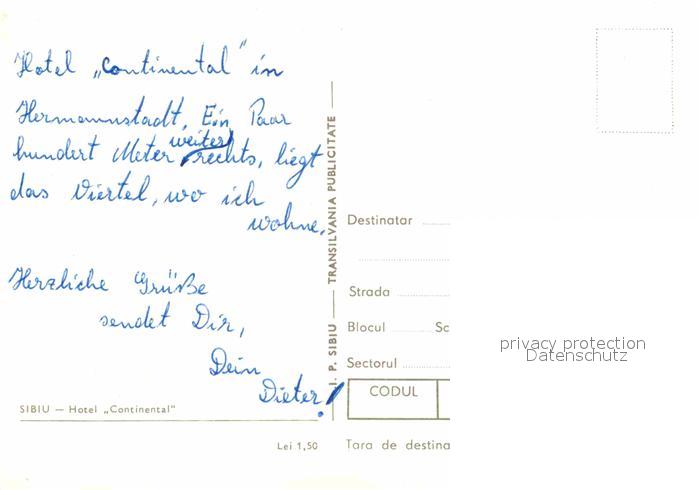 Hotel „Continental" in
Hermannstadt, Ein Paar
hundert Meter weiter rechts, liegt
das Viertel, wo ich
wohne.
Herzliche Grüße
sendet Dir,
Dein
Dieter!
SIBIU — Hotel „Continental"
Lei 1,50
I. P. SIBIU — TRANSILVANIA PUBLICITATE
Destinatar
Strada
Blocul Sc
Sectorul
CODUL
Tara de destina
privacy protection
Datenschutz